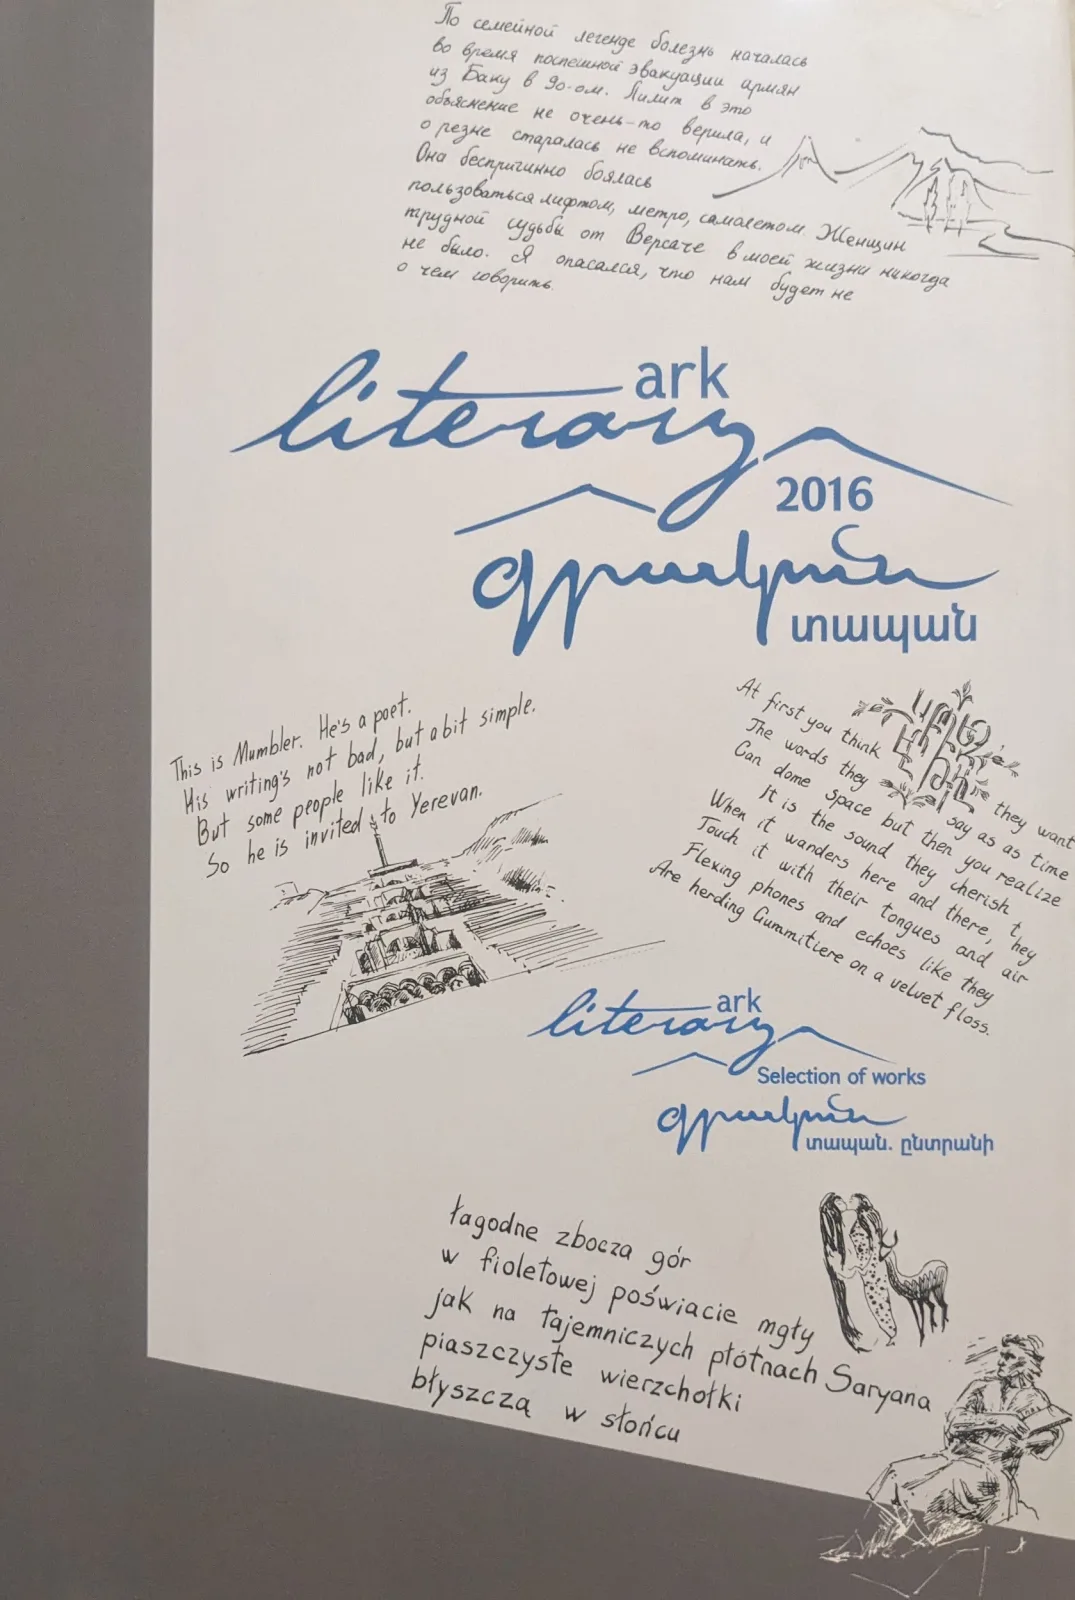 По семейной легенде болезнь началась
во время поспешной эвакуации армян
из Баку в 90-ом. Лилит в это
объяснение не очень-то верила, и
о резне старалась не вспоминать.
Она беспричинно боялась
пользоваться лифтом, метро, самолетом. Женщин
трудной судьбы от Версаче в моей жизни никогда
не было. Я опасался, что нам будет не
о чем говорить.
literary ark
2016
գրական
տապան
This is Mumbler. He's a poet.
His writing's not bad, but a bit simple.
But some people like it.
So he is invited to Yerevan.
At first you think they want
The words they say as as time
Can dome space but then you realize
It is the sound they cherish
When it wanders here and there, they
Touch it with their tongues and air
Flexing phones and echoes like they
Are herding Gummitiere on a velvet floss.
literary ark
Selection of works
գրական
տապան. ընտրանի
łagodne zbocza gór
w fioletowej poświacie mgły
jak na tajemniczych płótnach Saryana
piaszczyste wierzchołki
błyszczą w słońcu